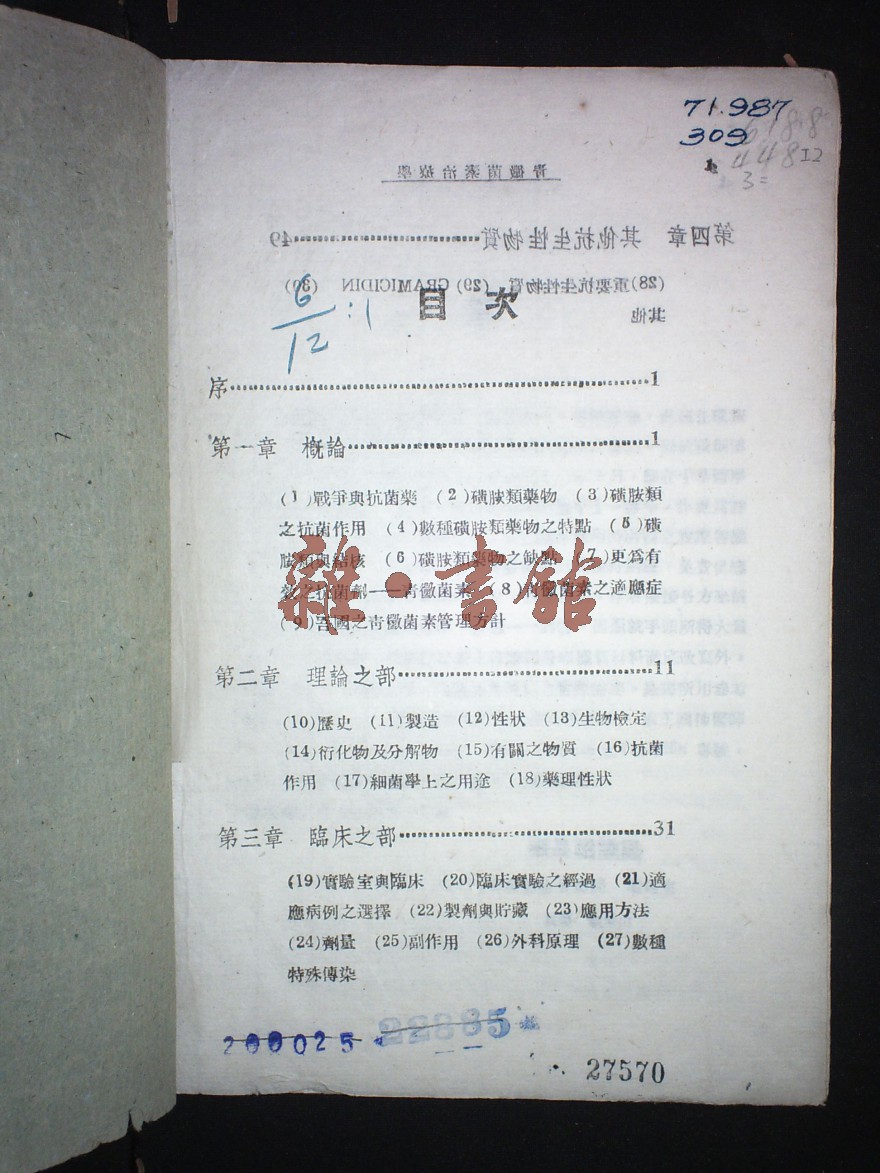 71.987
309
448I2
3=
青黴菌素治療學
第四章　其他抗生性物質……………49
(28)重要抗生性物質　(29) GRAMICIDIN　(30)
其他
目　次
6/12:1
序……………1
第一章　概論……………1
(1)戰爭與抗菌藥　(2)磺胺類藥物　(3)磺胺類
之抗菌作用　(4)數種磺胺類藥物之特點　(5)磺
胺類與結核　(6)磺胺類藥物之缺點　(7)更爲有
之抗菌劑——青黴菌素　(8)青黴菌素之適應症
(9)吾國之青黴菌素管理方計
雜·書館
第二章　理論之部……………11
(10)歷史　(11)製造　(12)性狀　(13)生物檢定
(14)衍化物及分解物　(15)有關之物質　(16)抗菌
作用　(17)細菌學上之用途　(18)藥理性狀
第三章　臨床之部……………31
(19)實驗室與臨床　(20)臨床實驗之經過　(21)適
應病例之選擇　(22)製劑與貯藏　(23)應用方法
(24)劑量　(25)副作用　(26)外科原理　(27)數種
特殊傳染
200025
22885
27570